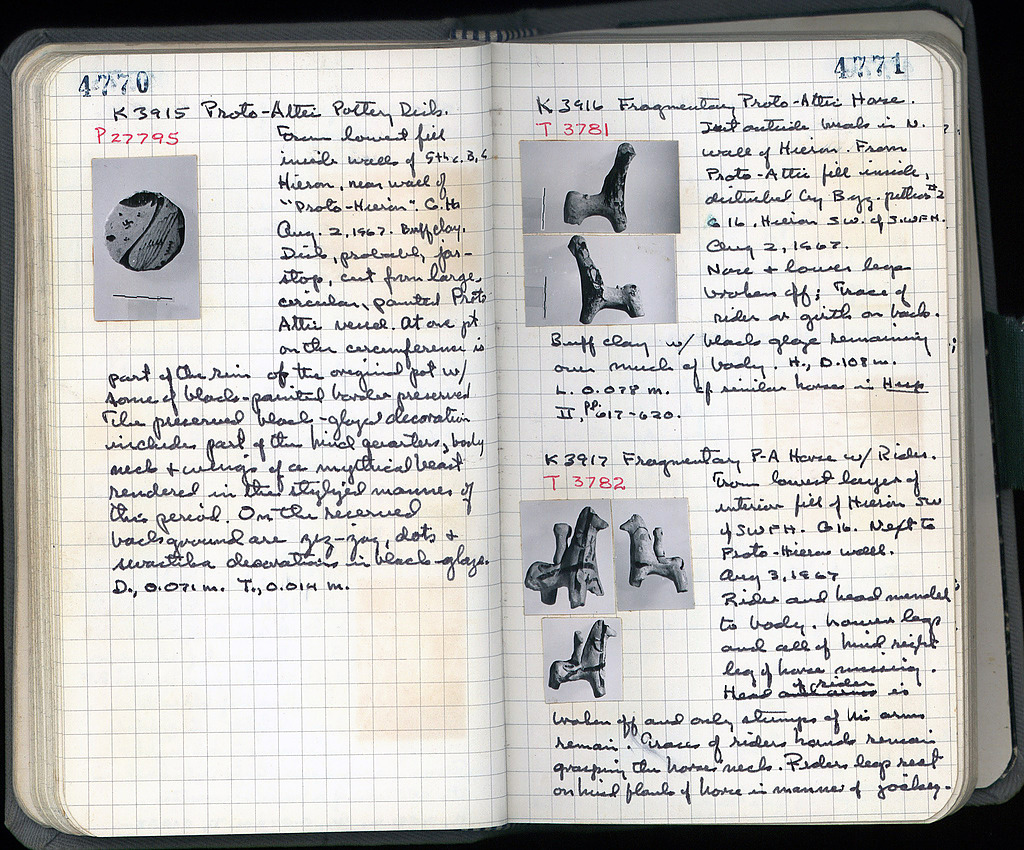 4770
K 3915 Proto-Attic Pottery Disk.
P 27795
From lowest fill
inside walls of 5th c. B.C.
Hieron, near wall of
"Proto-Hieron". G.16
Aug. 2, 1967. Buff clay.
Disk, probably jar-
stop, cut from large,
circular, painted Proto
Attic vessel. At one pt
on the circumference is
part of the rim of the original pot w/
some of black-painted border preserved
The preserved black-glazed decoration
includes part of the hind quarters, body
neck + wings of a mythical beast
rendered in the stylized manner of
this period. On the reserved
background are zig-zag, dots +
swastika decorations in black-glaze.
D., 0.071 m. T., 0.014 m.
4771
K 3916 Fragmentary Proto-Attic Horse.
T 3781
Just outside break in N.
wall of Hieron. From
Proto-Attic fill inside,
disturbed by Byz. pithos #2
G 16, Hieron S.W. of S.W.F.H.
Aug 2, 1967.
Nose + lower legs
broken off; Trace of
rider or girth on back.
Buff clay w/ black glaze remaining
over much of body. H., 0.108 m.
L. 0.078 m. Cf similar horses in Hesp
II, pp. 617-620.
K 3917 Fragmentary P-A Horse w/ Rider.
T 3782
From lowest layer of
interior fill of Hieron SW
of SWFH. G16. Next to
Proto-Hieron wall.
Aug 3, 1967
Rider and head mended
to body. Lower legs
and all of hind right
leg of horse missing.
Head of rider is
broken off and only stumps of his arms
remain. Traces of riders hands remain
grasping the horses neck. Riders legs rest
on hind flanks of horse in manner of jockey.